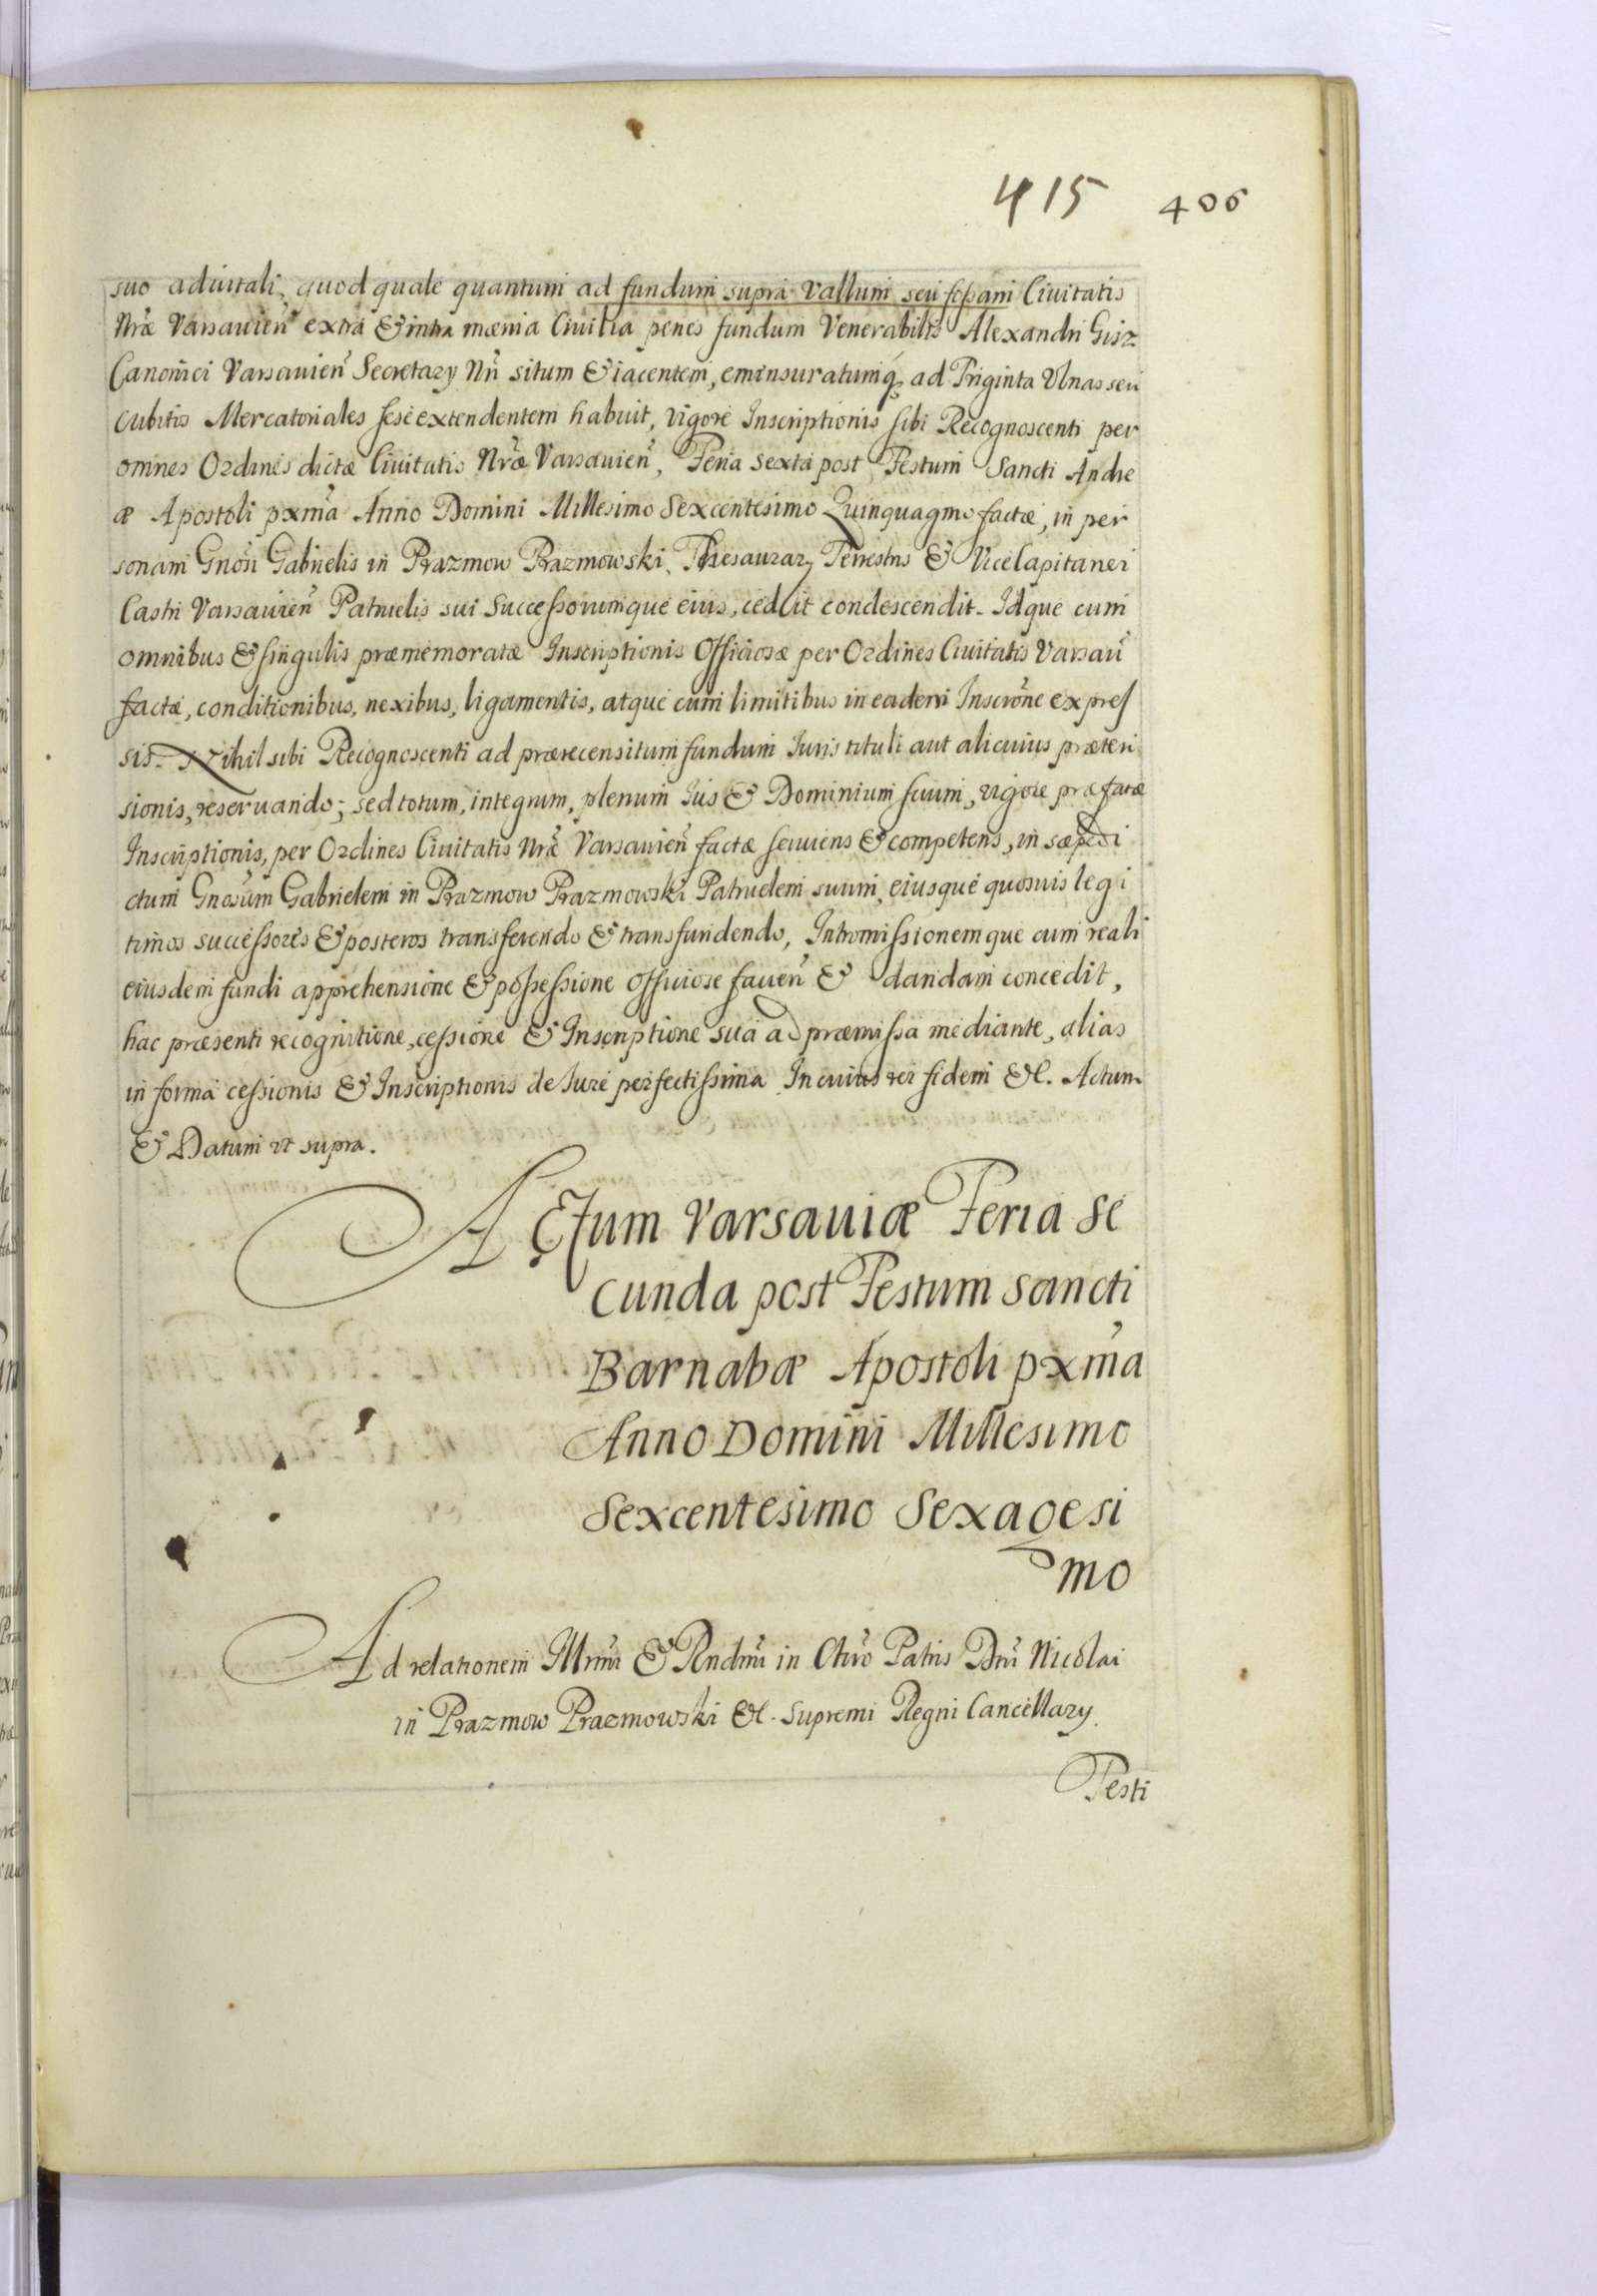 415 406
suo aduitali, quod quale quantum ad fundum supra Vallum seu fossam Ciuitatis
Nræ Varsauien extra & intra mænia Ciuilia penes fundum Venerabilis Alexandri Gisz
Canonici Varsauien Secretary Nri situm & iacentem, eminsuratumq; ad Triginta Vlnas seu
Cubitos Mercatoriales sese extendentem habuit, vigore Inscriptionis sibi Recognoscenti per
omnes Ordines dictæ Ciuitatis Nræ Varsauien, Feria sexta post Festum Sancti Andre
æ Apostoli pxma Anno Domini Millesimo Sexcentesimo Quinquagmo factæ, in per
sonam Gnosi Gabrielis in Prazmow Prazmowski, Thesaurary Terrestris & ViceCapitanei
Castri Varsauien Patruelis sui Successorumque eius, cedit condescendit. Idque cum
omnibus & singulis præmemoratæ Inscriptionis Officiosæ per Ordines Ciuitatis Varsau
factæ, conditionibus, nexibus, ligamentis, atque cum limitibus in eadem Inscrone expres
sis. Nihil sibi Recognoscenti ad præcensitum fundum Iuris tituli aut alicuius præten
sionis, reseruando; sed totum, integrum, plenum Ius & Dominium suum, vigore præfatæ
Inscriptionis, per Ordines Ciuitatis Nræ Varsauien factæ seruiens & competens, in sæpedi
ctum Gnosum Gabrielem in Prazmow Prazmowski Patruelem suum, eiusque quosuis legi
timos successores & posteros transferendo & transfundendo, Intromissionemque cum reali
eiusdem fundi apprehensione & possessione officiose fauen & dandam concedit,
hac præsenti recognitione, cessione & Inscriptione sua ad præmissa mediante, alias
in forma cessionis & Inscriptionis de Iure perfectissima. In cuius rei fidem &c. Actum
& Datum vt supra.
Actum Varsauiæ Feria se
cunda post Festum Sancti
Barnabæ Apostoli pxma
Anno Domini Millesimo
Sexcentesimo Sexagesi
mo
Ad relationem Illrmi & Rndmi in Chro Patris Dni Nicolai
in Prazmow Prazmowski &c. Supremi Regni Cancellary.
Testi